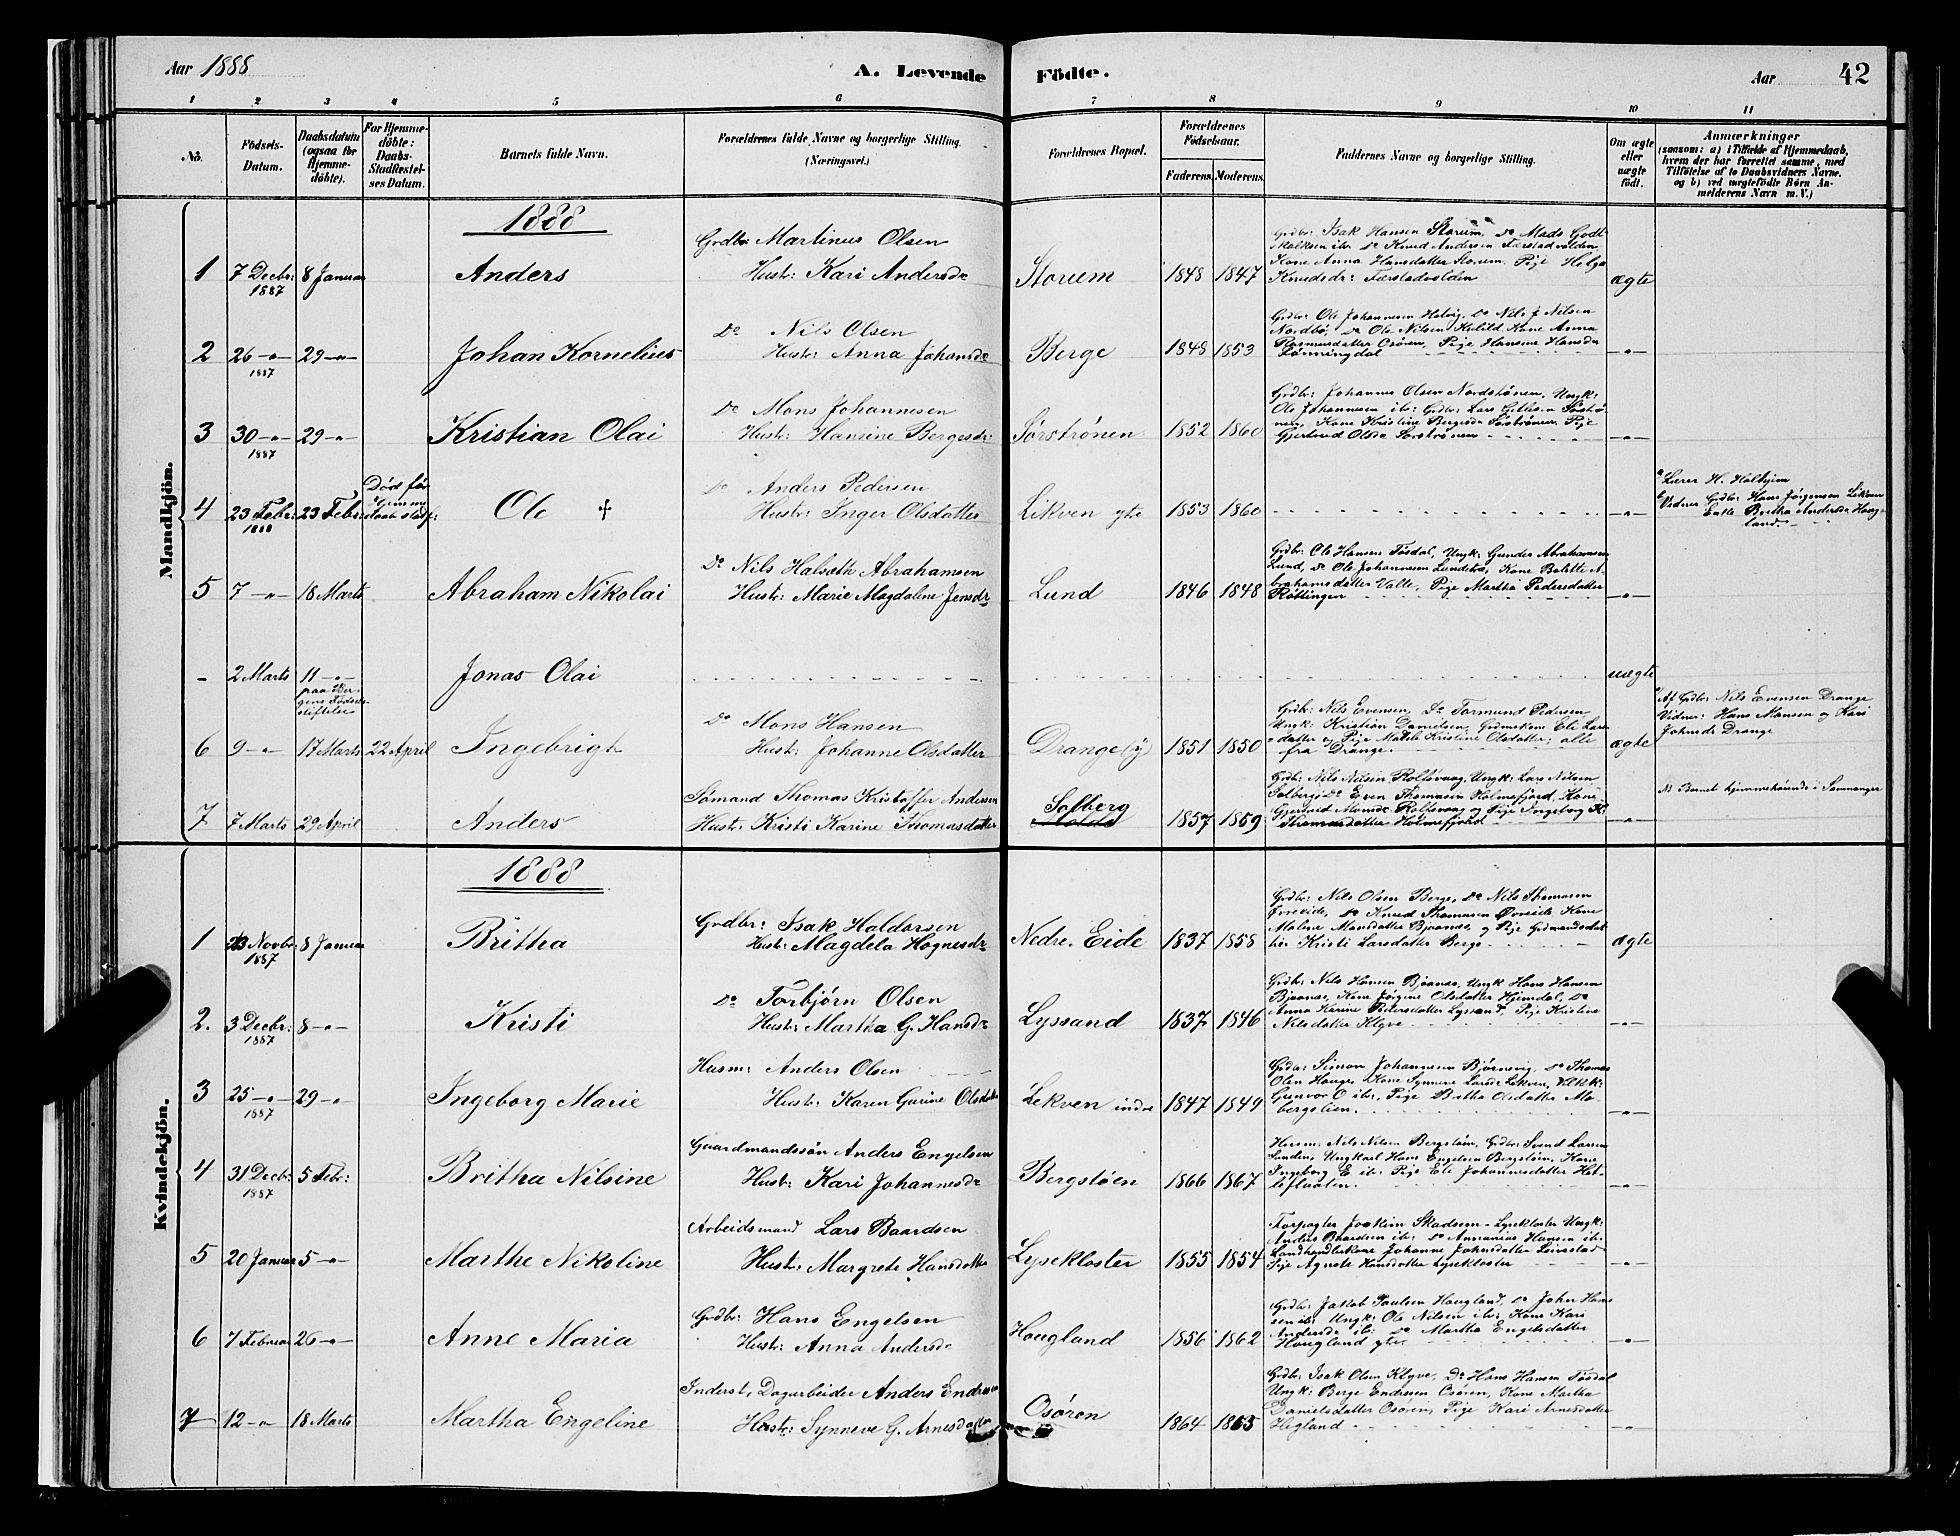 Aar 1888 A. Levende Födte. Aar 42
1 2 3 4 5 6 7 8 9 10 11
No. Födsels-Datum. Daabsdatum (ogsaa for Hjemme-döbte). For Hjemme-döbte: Daabs-Stadfæstel-ses Datum. Barnets fulde Navn. Forældrenes fulde Navne og borgerlige Stilling. (Næringsvei.) Forældrenes Bopæl. Forældrenes Födselsaar. Faderens. Moderens. Faddernes Navne og borgerlige Stilling. Om ægte eller uægte födt. Anmærkninger (saasom: a) i Tilfælde af Hjemmedaab, hvem der har forrettet samme, med Tilföielse af to Daabsvidners Navne, og b) ved uægtefödte Börn An-melderens Navn m.V.)
Mandkjön.
1888
Grdbr: Martinus Olsen
1 7 Decbr: 8 Januar Anders Hust: Kari Andersdr Storum 1848 1847 ægte
1887
Grdbr: Isak Hansen Storum, Do Mads Godt-
skalksen ibr. Do Knud Andersen Færstadvolden
Kone Anna Hansdatter Storum. Pige Helga
Knudsdr: Færstadvolden
Do Nils Olsen
2 26 -"- 29 -"- Johan Kornelius Hust: Anna Johansdr Berge 1848 1853 -"-
1887
Grdbr: Ole Johannesen Helvig, Do Nils J Nilsen
Nordbø, Do Ole Nilsen Kone Anna
Rasmusdatter Osøren, Pige Hansine Hansdr
Lønningdal
Do Mons Johannesen
3 30 -"- 29 -"- Kristian Olai Hust: Hansine Bergesdr: Sørstrønen 1852 1860 -"-
1887
Grdbr: Johannes Olsen Nordstrønen, Ungk:
Ole Johannesen ibr: Grdbr: Lars Sørstrø-
nen, Kone Kristine Bergesdr Sørstrønen Pige
Gjertrud Olsdr Sørstrønen
Død før Hjemme-daab stadf:
Do Anders Pedersen
4 23 Febr: 23 Febr: Ole † Hust: Inger Olsdatter Likven ytr 1853 1860 -"-
1888
a Lærer H. Holdhjem
b Vidner Grdbr: Hans Jørgensen Likven
Enke Britha Andersdr Houg-
land
Do Nils Halseth Abrahamsen
5 7 -"- 18 Marts Abraham Nikolai Hust: Marie Magdaline Jensdr Lund 1846 1848 -"-
Grdbr: Ole Hansen Tøsdal, Ungk: Gunder Abrahamsen
Lund, Do Ole Johannesen Lundetræ, Kone Bolette A-
brahamsdatter Valle, Pige Martha Pedersdatter
Røttingen
- 2 Marts 11 -"- Jonas Olai uægte
paa Ber-
gens Fødsels-
stiftelse
Do Mons Hansen
6 9 -"- 17 Marts 22 April Ingebrigt Hust: Johanne Olsdatter Drange (y) 1851 1850 ægte
Grdb: Nils Evensen, Do Tormund Pedersen
Ungk: Kristian Danielsen, Grdmskone Eli Lars-
datter og Pige Kristine Olsdatter; alle
fra Drange.
a) Af Grdbr: Nils Evensen Drange
Vidner: Hans Monsen og Kari
Johnsdr Drange
Sømand Thomas Kristoffer Andersen
7 7 Marts 29 April Anders Hust: Kristi Karine Thomasdatter Solberg 1857 1859 -"-
Grdbr: Nils Nilsen Roltsvaag, Ungk: Lars Nilsen
Solberg Do Even Thomassen Holmefjord, Kone
Gunnild Monsdr Roltsvaag og Pige Ingeborg K.
Thomasdatter Holmefjord
Barnet hjemmehørende i Samnanger
Kvindekjön.
1888
Grdbr: Isak Haldorsen
1 23 Novbr: 8 Januar Britha Hust: Magdela Hognesdr Nedre-Eide 1837 1858 ægte
1887
Grdbr: Nils Olsen Berge, Do Nils Thomasen
Øvreeide, Do Knud Thomasen Øvreeide Kone
Maline Monsdatter Bjønnes, og Pige Grdmandsdat-
ter Kristi Larsdatter Berge
Do Torbjørn Olsen
2. 3 Decbr: 8 -"- Kristi Hust: Martha G. Hansdr Lyssand 1837 1846 -"-
1887
Grdbr: Nils Hansen Bjønnes, Ungk Hans Hansen
Bjønnes, Kone Jørgine Olsdatter Hjemdal, Do
Anna Karine Pedersdatter Lyssand, Pige Kristine
Nilsdatter Klyve
Husm: Anders Olsen
3 25 -"- 29 -"- Ingeborg Marie Hust: Karen Gurine Olsdatter Lekven indre 1847 1849 -"-
1887
Grdbr: Simon Johannesen Bjørnevig, Do Thomas
Olsen Houge, Kone Synneve Larsdr Lekven,
Gunvor O ibr, Pige Britha Olsdatter Mo-
bergslien.
Gaardmandssøn Anders Engelsen
4 31 Decbr: 5 Febr: Britha Nilsine Hust: Kari Johannesdr Bergstøen 1866 1867 -"-
1887
Husm: Nils Nilsen Bergstøen, Grdbr: Svend Larsen
Linden, Ungkarl Hans Engelsen Bergstøen, Kone
Ingeborg E ibr. Pige Eli Johannesdatter Het-
lefloaten.
Arbeidsmand Lars Baardsen
5 20 Januar 5 -"- Marthe Nikoline Hust: Margrete Hansdatter Lysekloster 1855 1854 -"-
Forpagter Joakim Skadsem Lysekloster Ungk:
Anders Baardsen ibr: Do Annanias Hansen ibr:
Landhandlerkone Johanne Johnsdatter
Pige Agnete Hansdatter Lysekloster
Grdbr: Hans Engelsen
6 7 Februar 26 -"- Anne Maria Hust: Anna Andersdr Hougland 1856 1862 -"-
Grdbr: Jakob Paulsen Hougland, Do John Hans-
sen ibr Ungk: Ole Nilsen ibr: Kone Kari
Andersdr ibr: Do Martha Engelsdatter
Hougland ytre
Inderst, Dagarbeider Anders Endresen
7 12 -"- 18 Marts Martha Engeline Hust: Synneve G. Arnesdatter Osøren 1864 1865 -"-
Grdbr: Isak Olsen Klyve, Do Hans Hansen Tøsdal
Ungk: Berge Endresen Osøren, Kone Martha
Danielsdatter Osøren, Pige Kari Arnesdatter
Hegland